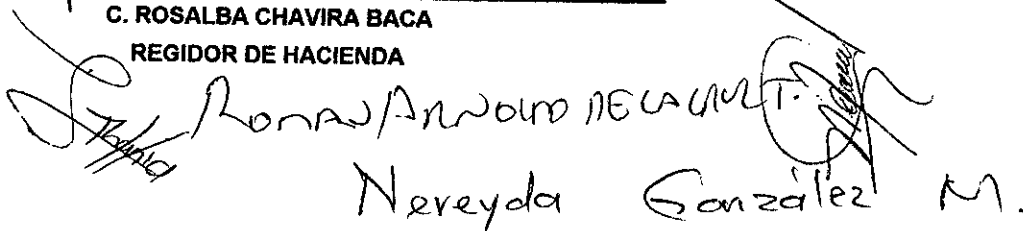 C. ROSALBA CHAVIRA BACA
REGIDOR DE HACIENDA
ROMAN ARNOLDO DE LA CRUZ T.
Nereyda González M.